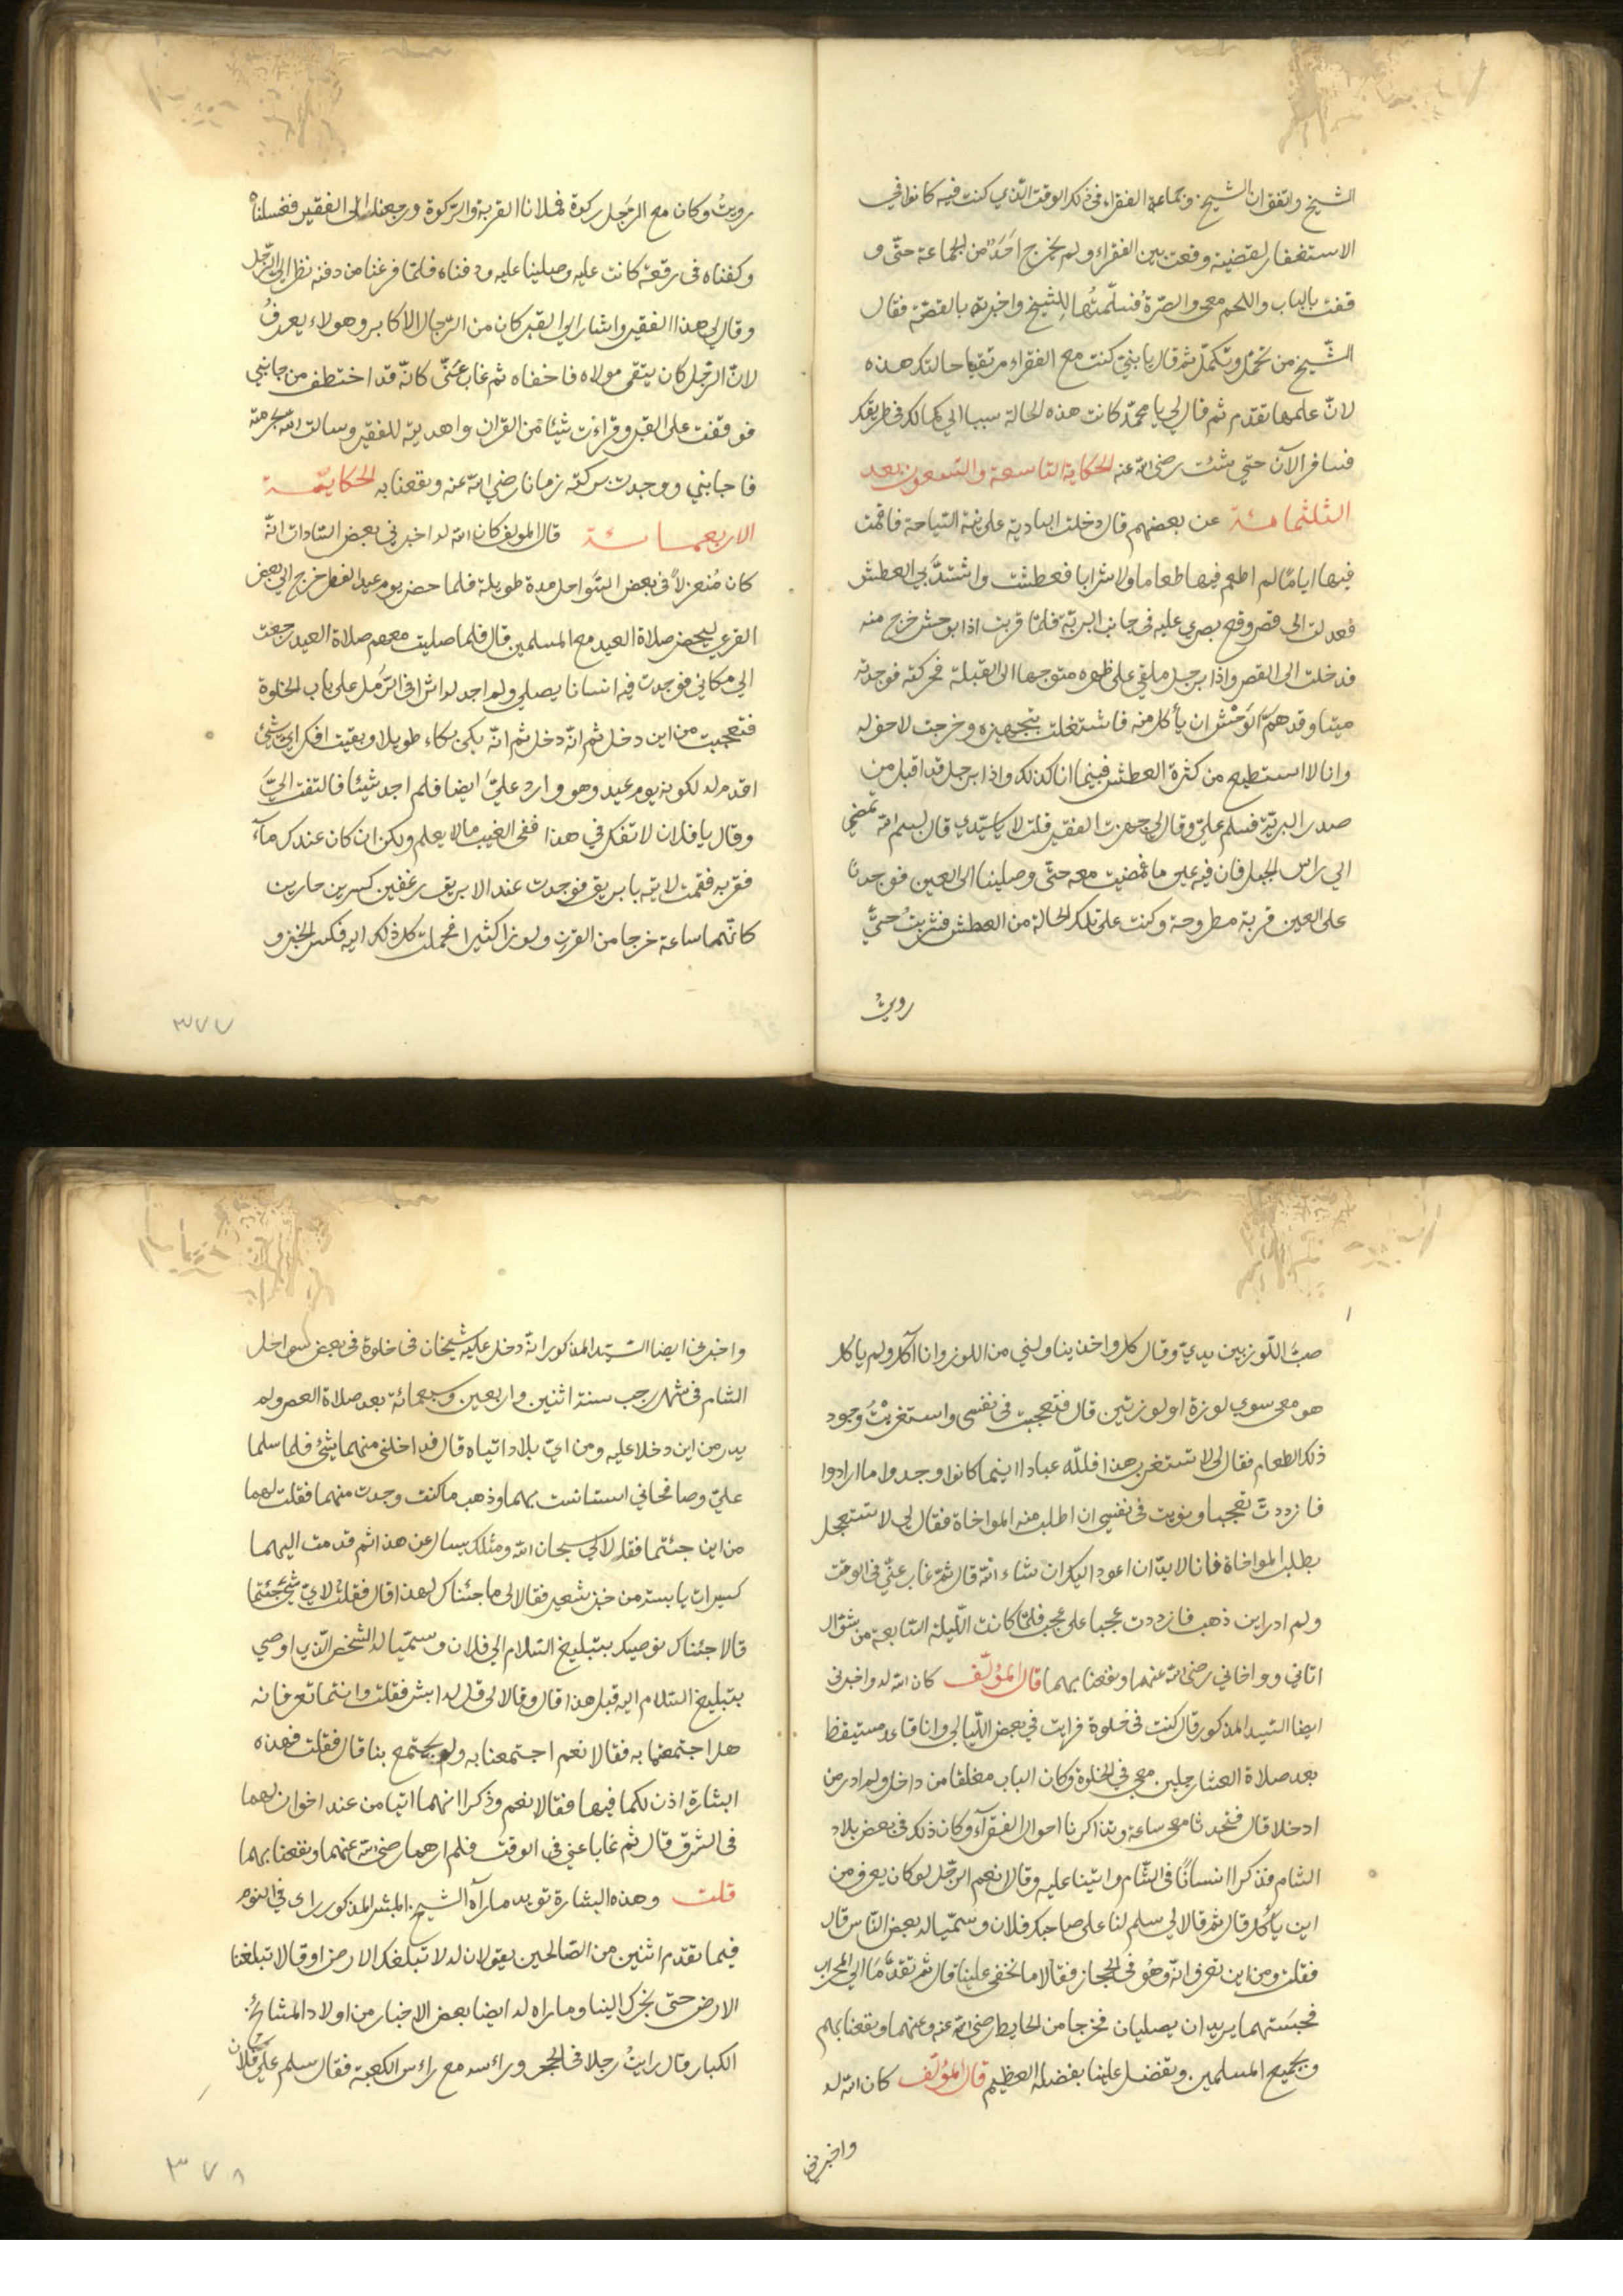 الشيخ واتفق ان الشيخ وجماعة الفقراء في ذلك الوقت الذي كنت فيه كانوا في
الاستغفار لقضية وقعت بين الفقراء ولم يخرج احَدٌ من الجماعة حتّى و
قفت بالباب واللحم معي والصّرةُ فسلّمتُهما للشيخ واخبرته بالقصّة فقال
الشّيخ من تحمّل وتكمّل ثم قال يا بنيّ كنت مع الفقراء مرتقبا حالتك هذه
لانّ علمها تقدم ثم قال لي يا محمّد كانت هذه الحالة سببا الي كمالك في طريقك
فسافر الآن حتي شئت رضي الله عنه الحكاية التاسعة والتسعون بعد
الثلثمائة عن بعضهم قال دخلت البادية على نية السّياحة فاقمت
فيها ايامًا لم اطعم فيها طعاما ولا شرابا فعطشت واشتدّ بي العطش
فعدلت الى قصر وقع بصري عليه في جانب البريّة فلمّا قربت اذا بوحش خرج منه
فدخلت الى القصر واذا برجل ملقي على ظهره متوجها الى القبلة فحركته فوجدته
ميتا وقد همّ الوَحش ان يأكل منه فاشتغلت بتجهيزه وخرجت لاحفر له
وانا لا استطيع من كثرة العطش فبينما انا كذلك واذا برجل قد اقبل من
صدر البريّة فسلم عليّ وقال لي جهزت الفقير قلت لا يا سيّدي قال بسم الله تمضي
الي راس الجبل فان فيه عين ما فمضيت معه حتّى وصلينا الى العين فوجدنا
على العين قربة مطروحة وكنت على تلك الحالة من العطش فشربتُ حتيّ
رويتُ
رويتُ وكان مع الرّجل ركوة فملانا القربة والركوة ورجعنا الى الفقير فغسلناه
وكفناه في رقعة كانت عليه وصلينا عليه ودفناه فلمّا فرغنا من دفنه نظر الى الرّجل
وقال لي هذا الفقير واشار الى القبر كان من الرّجال الاكابر وهولاء يعرفُ
لانّ الرّجل كان يتقى مولاه فاخفاه ثم غاب عنّي كانّه قد اختطف من جانبي
فوقفت على القبر وقراءت شيئا من القران واهديته للفقير وسالت الله بحرمته
فاجابني ووجدت بركته زمانا رضي الله عنه ونفعنا به الحكايتمـة
الاربعمـائـة قال المولف كان الله له اخبرني بعض السّادات انّه
كان مُنعزلاً في بعض السّواحل مدة طويلة فلما حضر يوم عيد الفطر خرج الي بعض
القرى ليحضر صلاة العيد مع المسلمين قال فلما صليت معهم صلاة العيد رجعت
الي مكاني فوجدت فيه انسانا يصلي ولم اجد له اثرا في الرّمل على باب الخلوة
فتعجبت من اين دخل ثم انّه دخل ثم انّه بكى بكاء طويلا وبقيت افكر ايّ شيء
اقدم له لكونه يوم عيد وهو وارد عليّ ايضا فلم اجد شيئا فالتفت اليّ
وقال يا فلان لا تفكر في هذا ففي الغيب ما لا يعلم ولكن ان كان عندك مآء
فقربه فقمت لاتيه بابريق فوجدت عند الابريق رغفين كبيرين حارين
كانّهما ساعة خرجا من الفرن ولوزا كثيرا فحملت كل ذلك اليه فكسر الخبز و
٣٧٧
صبّ اللّوز بين يديّ وقال كل واخذ يناولني من اللوز وانا آكل ولم ياكل
هو معي سوي لوزة او لوزتين قال فتعجبت في نفسي واستغربْتُ وجود
ذلك الطعام فقال لي لا تستغرب هذا فلله عبادا اينما كانوا وجدوا ما ارادوا
فازددتُ تعجبا ونويت في نفسي ان اطلب منه المواخاة فقال لي لا تستعجل
بطلب المواخاة فانا لا بدّ ان اعود اليك ان شاء الله قال ثم غاب عنّي في الوقت
ولم ادر اين ذهب فازددت عجبا على عجب فلمّا كانت اللّيلة السّابعة من شوّال
اتاني وواخاني رضي الله عنهما ونفعنا بهما قال المؤلّف كان الله له واخبرني
ايضا السّيد المذكور قال كنت في خلوة فرايت في بعض اللّيالي وانا قاعد مستيقظا
بعد صلاة العشا رجلين معي في الخلوة وكان الباب مغلقا من داخل ولم ادر من
اين دخلا قال فتحدثا معي ساعة وتذاكرنا احوال الفقرآء وكان ذلك في بعض بلاد
الشام فذكرا انسانًا في الشّام واثنينا عليه وقالا نعم الرّجل لو كان يعرف من
اين يأكل قال ثم قالا لي سلم لنا على صاحبك فلان وسمّيا له بعض النّاس قال
فقلت ومن اين تعرفانه وهُو في الحجاز فقالا ما تخفى علينا قال ثم تقدّمَا الي المحراب
فحبستهما يريدان يصليان فخرجا من الحايط رضي الله عنه وعنهما ونفعنا بهم
وبجميع المسلمين وتفضل علينا بفضله العظيم قال المؤلّف كان الله له
واخبرني
واخبرني ايضا السّيد المذكور انّه دخل عليه شيخان في خلوة في بعض سواحل
الشام في شهر رجب سنة اثنين واربعين وسبعمائة بعد صلاة العصر ولم
يدر من اين دخلا عليه ومن ايّ بلاد اتياه قال فداخلني منهما شئ فلما سلما
عليّ وصافحاني استانست بهما وذهب ما كنت وجدت منهما فقلت لهما
من اين جئتما فقالا لي سبحان الله ومثلك يسال عن هذا ثم قدمت اليهما
كسيرات يابسة من خبز شعير فقالا لي ما جئناك لهذا قال فقلت لايّ شيء جئتما
قالا جئناك نوصيك بتبليغ السّلام الي فلان وسمّيا له الشخص الّذي اوصي
بتبليغ السّلام اليه قبل هذا قال وقالا لي قل له ابشر فقلت وانتما تعرفانه
هل اجتمعتما به فقالا نعم اجتمعنا به ولم يجتمع بنا قال فقلت فهذه
البشارة اذن لكما فيها فقالا نعم وذكرا انهما اتيا من عند اخوان لهما
في الشرق قال ثم غابا عني في الوقت فلم ارهما رضي الله عنهما ونفعنا بهما
قلت وهذه البشارة تويد ما رآه الشيخ المبشر المذكور راى في النوم
فيما تقدم اثنين من الصّالحين يقولان له لا تبلغك الارض او قالا تبلغنا
الارض حتى نخبرك الينا وما راه له ايضا بعض الاخيار من اولاد المشائخ
الكبار وقال رايتُ رجلا في الحجر وراءسه مع راءس الكعبة فقال سلم على فلان
٣٧٨